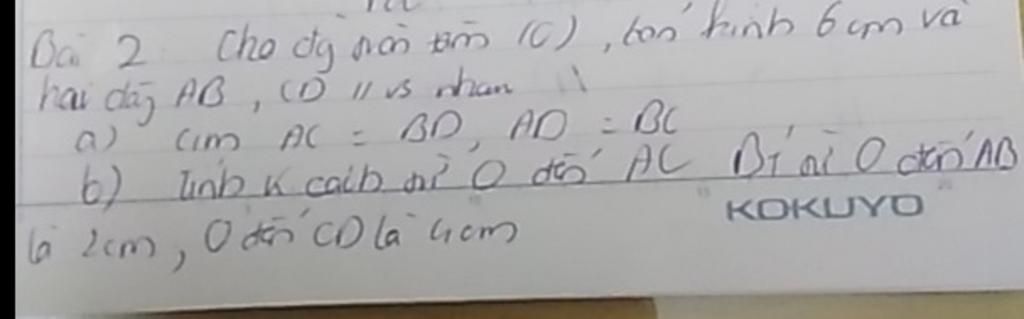 Bài 2 Cho đg tròn tâm (C), bán kính 6 cm và
hai dây AB, CD // vs nhau
a) Cm AC = BD, AD = BC
b) Tính k cách từ O đến AC Bt từ O đến AB
KOKUYO
là 2cm, O đến CD là 4cm